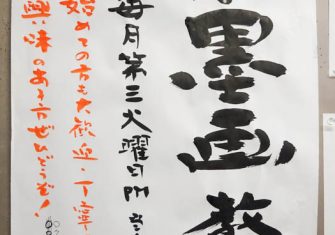 墨画教
毎月第三火曜日PM
始めての方も大歓迎・丁寧
興味のある方ぜひどうぞ!